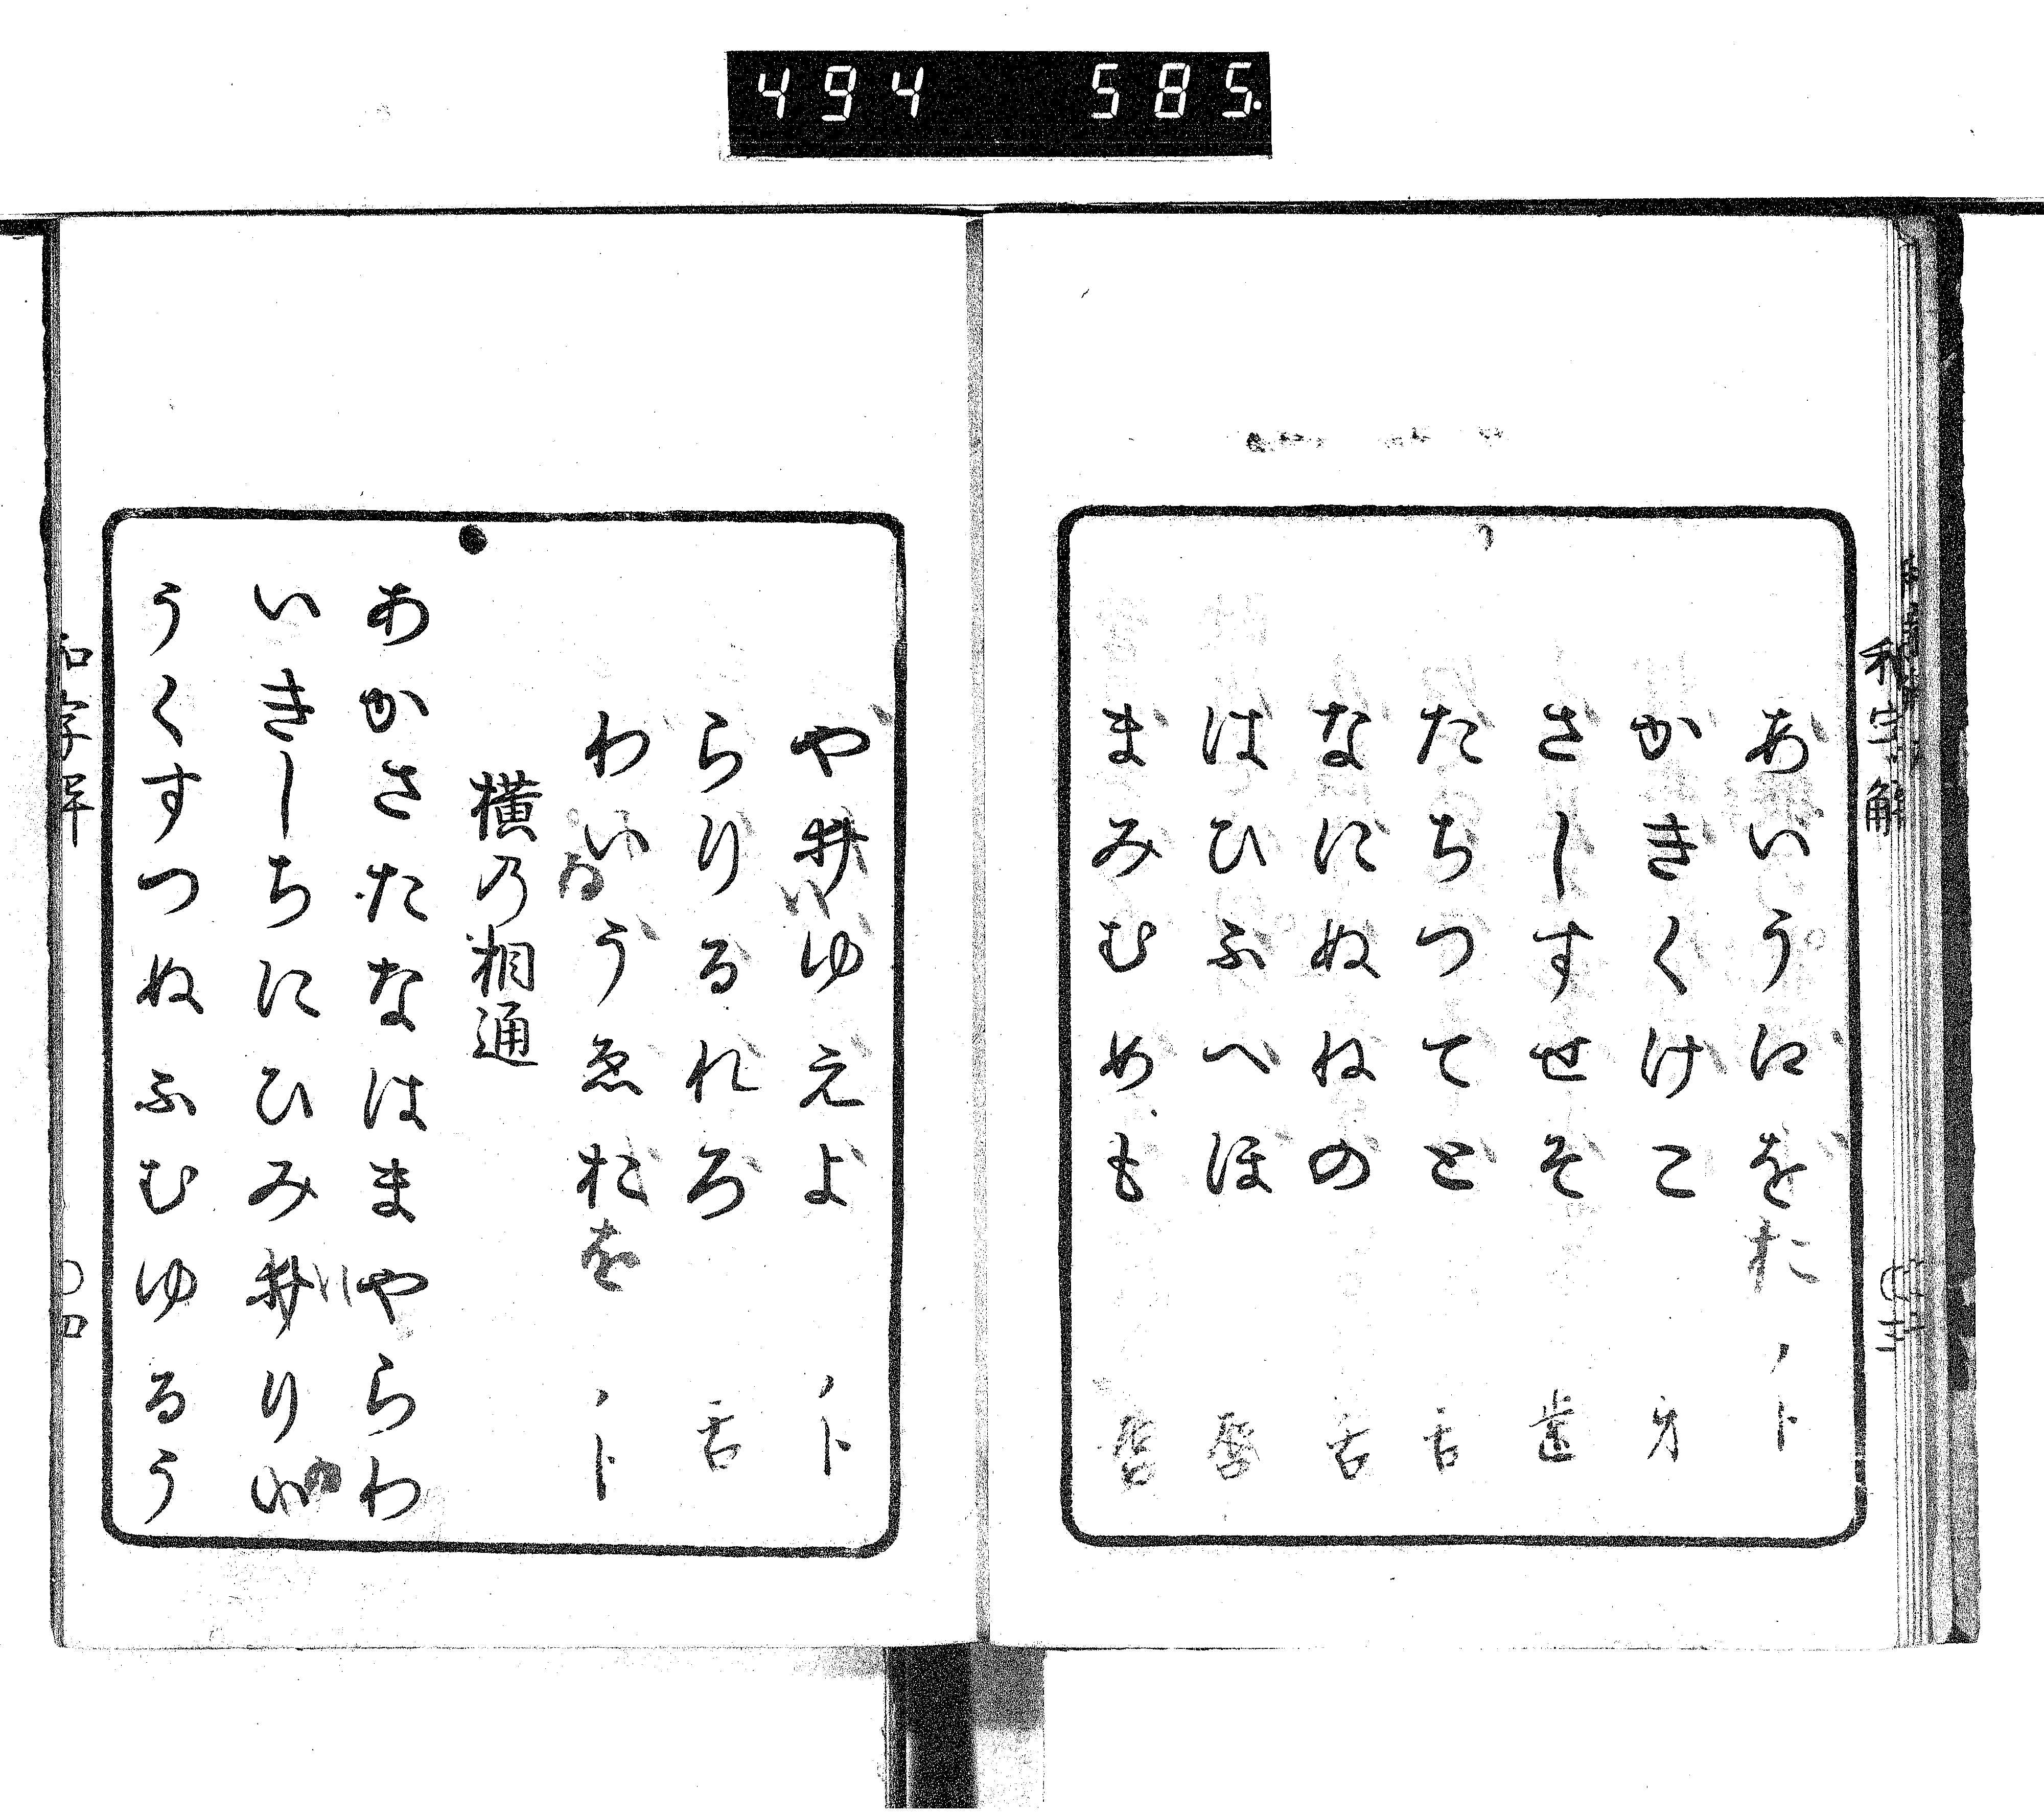 494 585.
和字解
あいう江をお ノト
かきくけこ 牙
さしすせそ 歯
たちつてと 舌
なにぬねの 舌
はひふへほ 唇
まみむめも 唇
や井いゆえよ ノト
らりるれろ 舌
わいゐうゑおを ノト
横乃相通
あかさたなはまやらわ
いきしちにひみ井いりい
うくすつぬふむゆるう
和字解
〇四